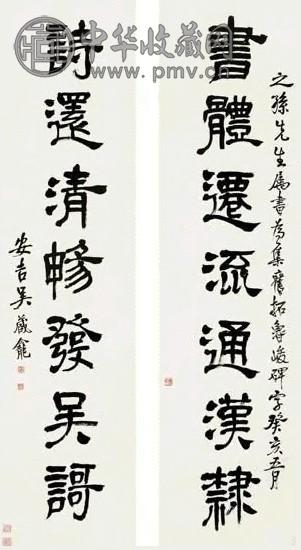 中华收藏网
www.pmv.cn
之孫先生屬書為集舊拓魯峻碑字癸亥五月
書體遷流通漢隸
詩還清暢發吳謌
安吉吳藏龕